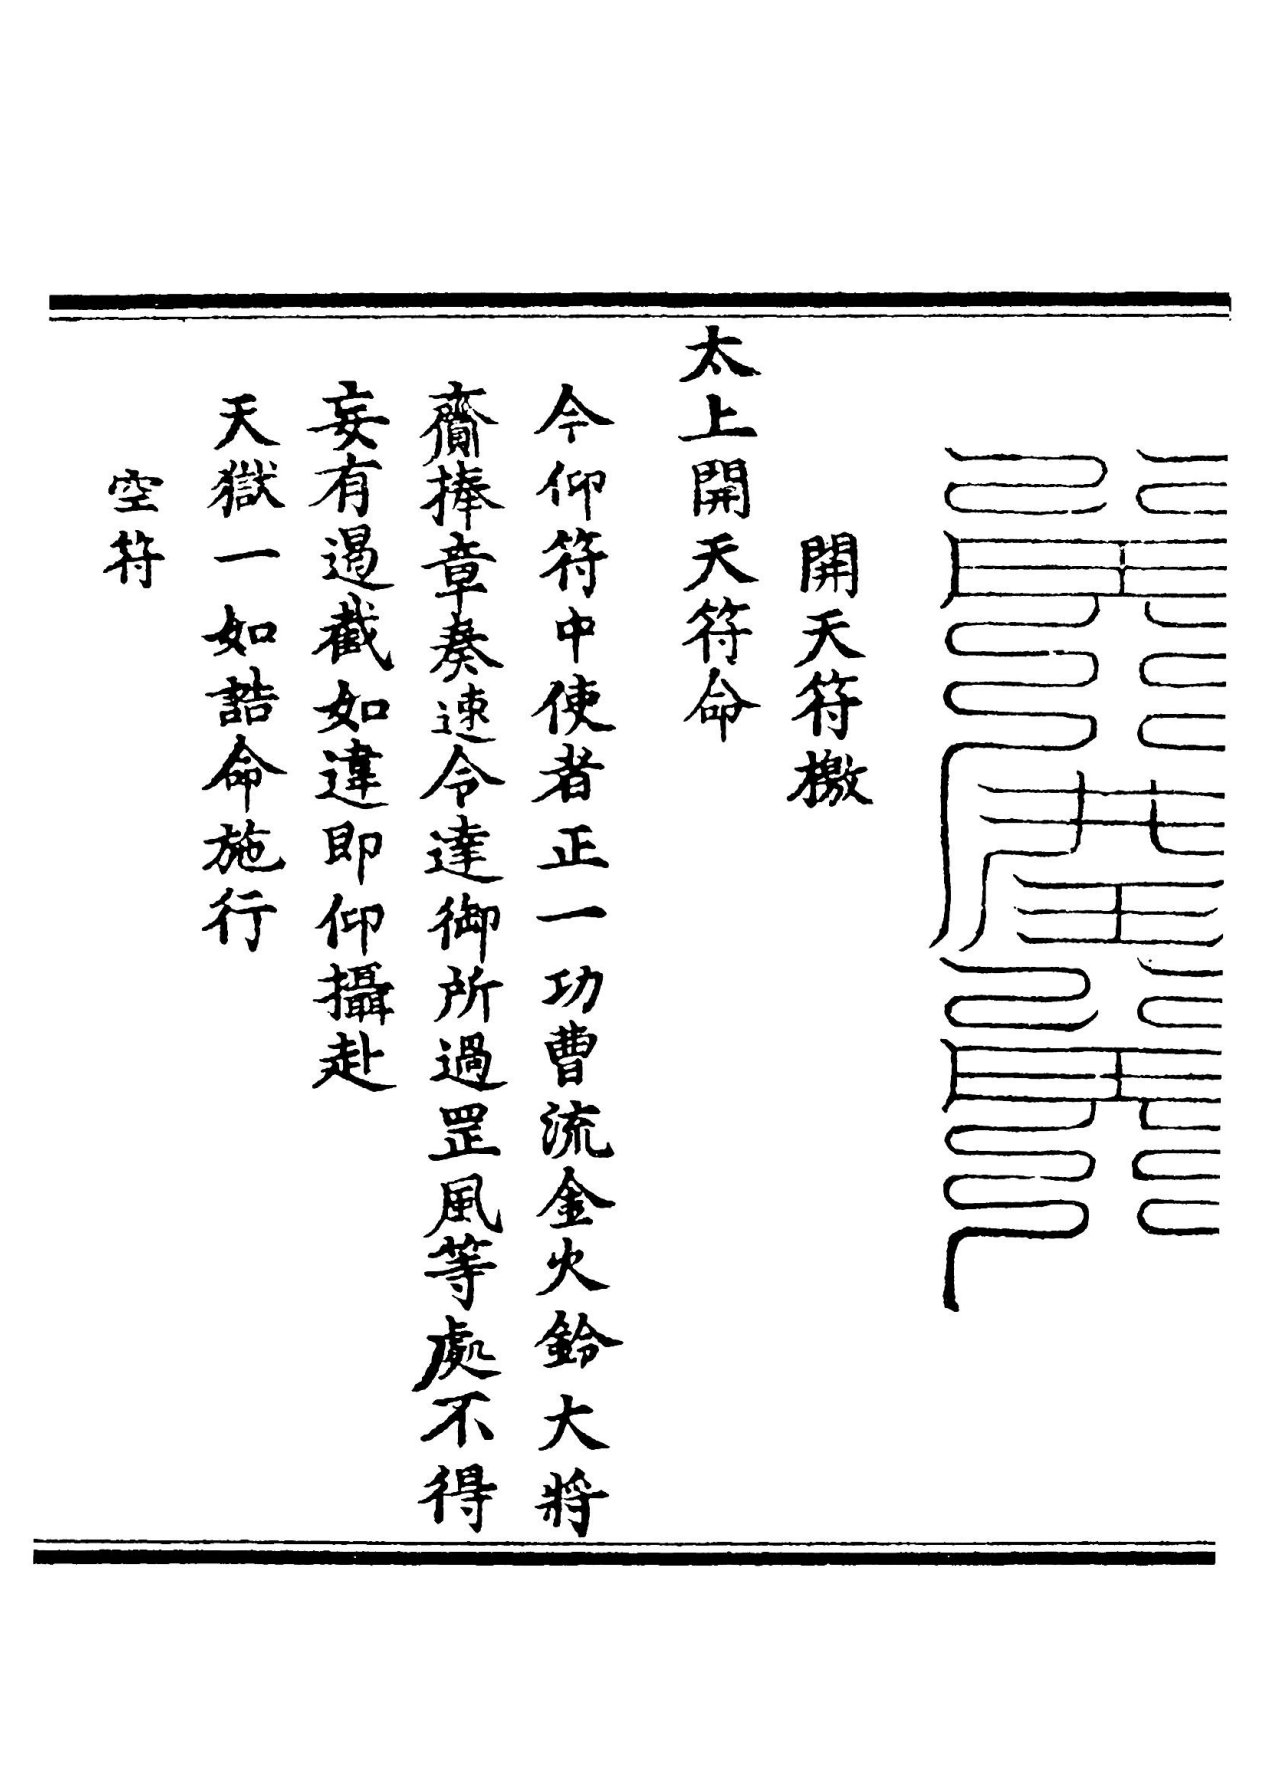 開天符檄
太上開天符命
今仰符中使者正一功曹流金火鈴大將
齎捧章奏速令達御所過罡風等處不得
妄有遏截如違即仰攝赴
天獄一如誥命施行
空符